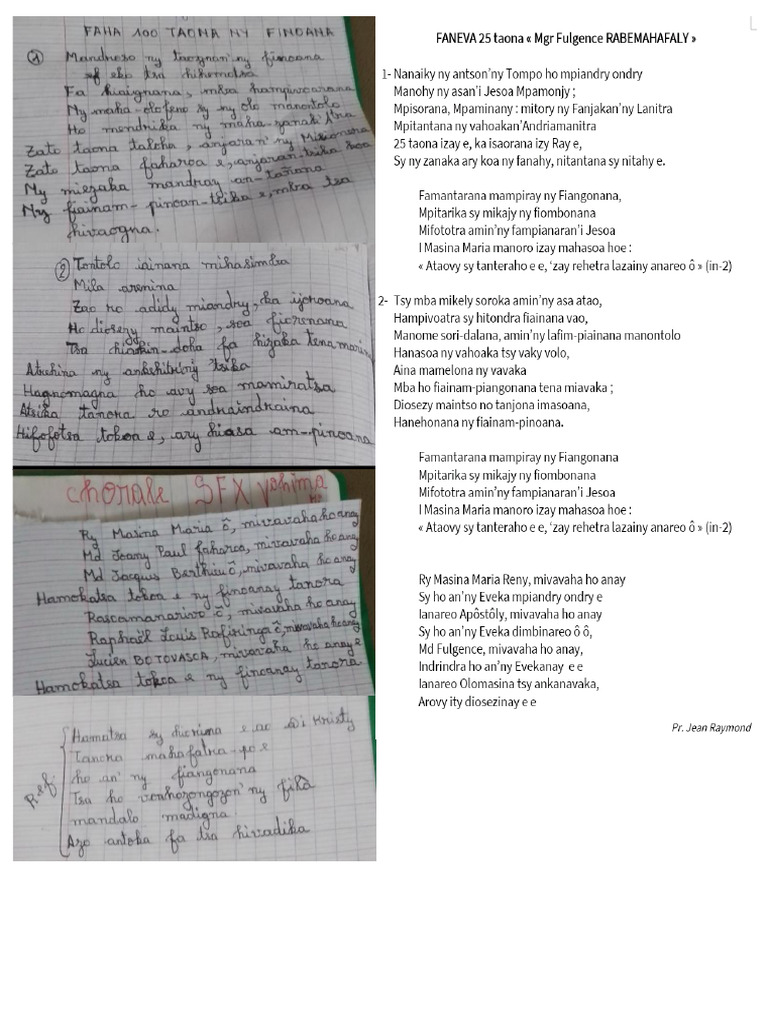 FAHA 100 TAONA NY FINOANA
① Mandroso ny taognan'ny finoana
tsa hihemotsa
Fa hiaignana, mbra hampivoarana
Ny maha-olofeno sy ny olo manontolo
Ho mendrika ny maha-zanak'Ina
Zato taona taloha, anjaran' ny Misionera
Zato taona faharoa e, anjaran-tsika koa
Ny miezaka mandray an-tañana
Ny fiainam-pinoan-tsika e, mbra tsa
hivaogna.
② Tontolo iainana mihasimba
Mila arenina
Zao ro adidy miandry, ka ijoroana
Ho diosezy maintso, soa fiorenana
Tsa hiankin-doha fa hizaka tena
Atrehina ny ankehitriny tsika
Hagnomagna ho avy soa mamiratsa
Atsika tanora ro andraindraina
Hifofotsa tokoa e, ary hiasa am-pinoana
chorale SFX vohima
Ry Masina Maria ô, mivavaha ho anay
Md Joany Paul faharoa, mivavaha ho anay
Md Jacques Berthieu ô, mivavaha ho anay
Hamokatsa tokoa e ny finoanay tanora
Rasoamanarivo ô, mivavaha ho anay
Raphaël Louis Rafiringa ô, mivavaha ho anay
Lucien BOTOVASOA, mivavaha ho anay e
Hamokatsa tokoa e ny finoanay tanora
Ref: Hamatsa sy hierina e ao Di Kristy
Tanora mahafatra-po e
ho an' ny fiangonana
Tsa ho vonhozongozon' ny fika
mandalo madigna
Azo antoka fa tsa hivadika
L
FANEVA 25 taona « Mgr Fulgence RABEMAHAFALY »
1- Nanaiky ny antson'ny Tompo ho mpiandry ondry
Manohy ny asan'i Jesoa Mpamonjy ;
Mpisorana, Mpaminany : mitory ny Fanjakan'ny Lanitra
Mpitantana ny vahoakan'Andriamanitra
25 taona izay e, ka isaorana izy Ray e,
Sy ny zanaka ary koa ny fanahy, nitantana sy nitahy e.
Famantarana mampiray ny Fiangonana,
Mpitarika sy mikajy ny fiombonana
Mifototra amin'ny fampianaran'i Jesoa
I Masina Maria manoro izay mahasoa hoe :
« Ataovy sy tanteraho e e, 'zay rehetra lazainy anareo ô » (in-2)
2- Tsy mba mikely soroka amin'ny asa atao,
Hampivoatra sy hitondra fiainana vao,
Manome sori-dalana, amin'ny lafim-piainana manontolo
Hanasoa ny vahoaka tsy vaky volo,
Aina mamelona ny vavaka
Mba ho fiainam-piangonana tena miavaka ;
Diosezy maintso no tanjona imasoana,
Hanehonana ny fiainam-pinoana.
Famantarana mampiray ny Fiangonana
Mpitarika sy mikajy ny fiombonana
Mifototra amin'ny fampianaran'i Jesoa
I Masina Maria manoro izay mahasoa hoe :
« Ataovy sy tanteraho e e, 'zay rehetra lazainy anareo ô » (in-2)
Ry Masina Maria Reny, mivavaha ho anay
Sy ho an'ny Eveka mpiandry ondry e
Ianareo Apôstôly, mivavaha ho anay
Sy ho an'ny Eveka dimbinareo ô ô,
Md Fulgence, mivavaha ho anay,
Indrindra ho an'ny Evekanay e e
Ianareo Olomasina tsy ankanavaka,
Arovy ity diosezinay e e
Pr. Jean Raymond